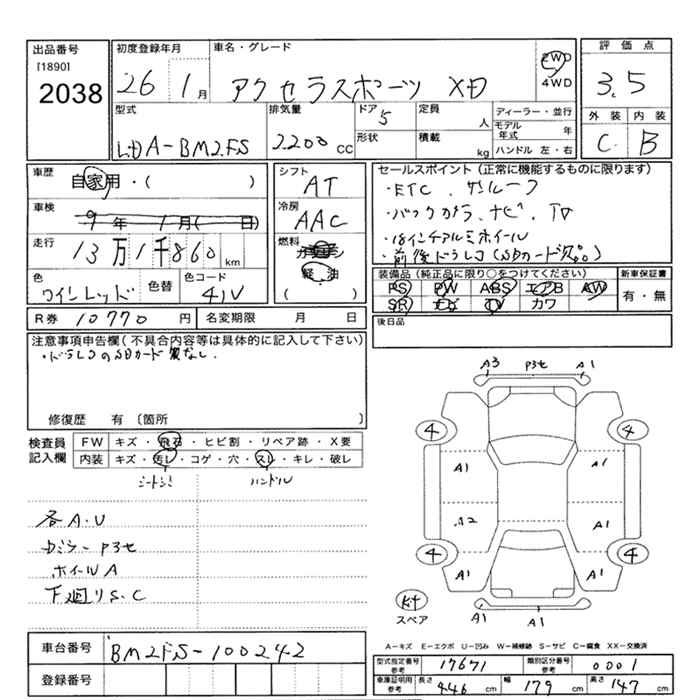 出品番号 初度登録年月 車名・グレード 2WD 評価点
[1890] 26 1月 アクセラスポーツ XD 4WD 3.5
2038
型式 排気量 ドア 5 定員 人 ディーラー・並行 外装 内装
LDA-BM2FS 2200 CC 形状 積載 kg モデル年式 年 C B
ハンドル 左・右
車歴 自家用・( ) シフト AT セールスポイント(正常に機能するものに限ります)
車検 9年 1月( 日) 冷房 AAC ・ETC、サンルーフ
・バックカメラ、ナビ、TV
走行 13万1千860km 燃料 ガソリン ・18インチアルミホイール
軽油 ・前後ドラレコ(SDカード欠品)
色 ワインレッド 色替 色コード 41V ( ) 装備品(純正品に限り○をつけてください) 新車保証書
PS PW ABS エアB AW 有・無
SR ナビ TV カワ
R券 10770円 名変期限 月 日 後日品
注意事項申告欄(不具合内容等は具体的に記入して下さい)
・ドラレコのSDカード無なし.
修復歴 有〔箇所 〕
検査員 FW キズ・飛石・ヒビ割・リペア跡・X要
記入欄 内装 キズ・汚レ・コゲ・穴・スレ・キレ・破レ
シートシミ ハンドル
各A.U
カミラー P3セ
ホイールA
下廻りS.C
A3 P3セ A1
4 4
A1 A1
A2 A1
4 4
A1 A1
スペア A1 A1
A-キズ E-エクボ U-凹み W-補修跡 S-サビ C-腐食 XX-交換済
車台番号 BM2FS-100242
登録番号
型式指定番号 参考 17671 類別区分番号 参考 0001
車庫証明用 参考 長さ 446 cm 幅 179 cm 高さ 147 cm